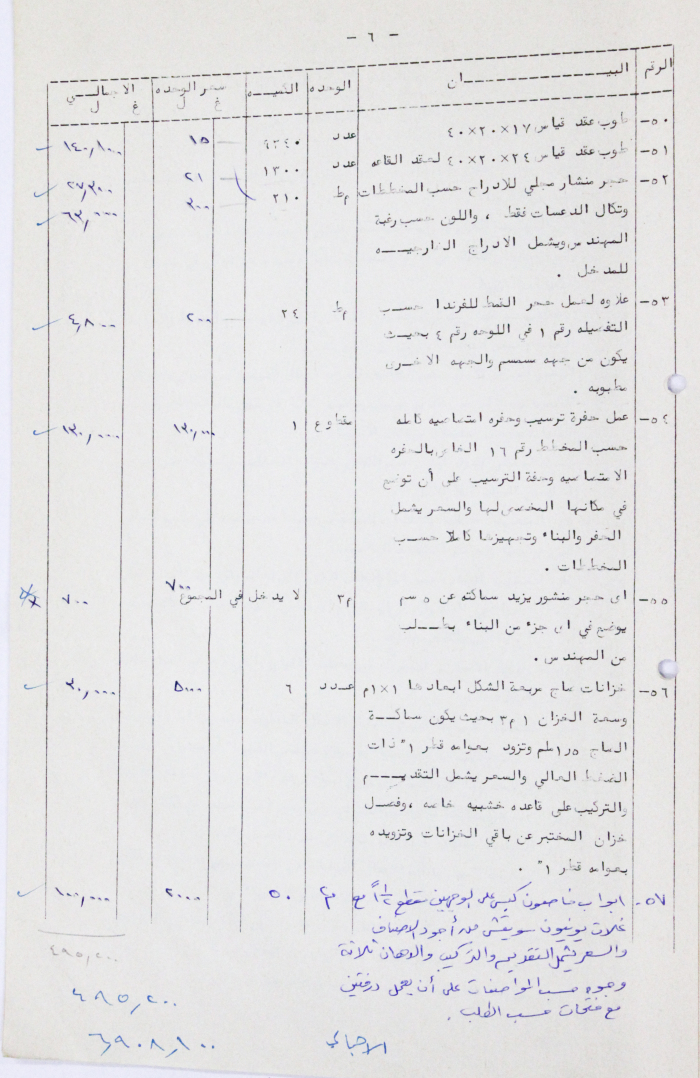 - ٦ -
الرقم البيـــــــــان الوحده الكميـــه سعر الوحده الاجمالــي
غ ل غ ل
٥٠- طوب عقد قياس ١٧×٢٠×٤٠ عدد ٩٣٤٠ ١٥ — ١٤٠,١٠٠
٥١- طوب عقد قياس ٢٤×٢٠×٤٠ لعقد القاعه عدد ١٣٠٠ ٢١ — ٢٧,٣٠٠
٥٢- حجر منشار مجلي للادراج حسب المخططات م٠ط ٢١٠ ٣٠٠ ٦٣,٠٠٠
وتكال الدعسات فقط ، واللون حسب رغبة
المهندس ويشمل الادراج الخارجيــه
للمدخل .
٥٣- علاوه لعمل حجر القمط للفرندا حســب م٠ط ٢٤ ٢٠٠ — ٤,٨٠٠
التفصيله رقم ١ في اللوحه رقم ٤ بحيــث
يكون من جهه مسمسم والجهه الاخــرى
مطوبه .
٥٤- عمل حفرة ترسيب وحفره امتصاصيه كامله مقطوع ١ ١٣٠,٠٠٠ ١٣٠,٠٠٠
حسب المخطط رقم ١٦ الخاص بالحفره
الامتصاصيه وحفة الترسيب على أن توضع
في مكانها المخصص لها والسعر يشمل
الحفر والبناء وتجهيزها كاملا حســب
المخططات .
٥٥- اى حجر منشور يزيد سماكته عن ٥ سم م٣ لا يدخل في المجموع ٧٠٠ ٧٠٠
يوضع في اى جزء من البناء بطــلب
من المهندس .
٥٦- خزانات صاج مربعة الشكل ابعادها ١×١م عــدد ٦ ٥٠٠٠ ٣٠,٠٠٠
وسعة الخزان ١ م٣ بحيث يكون سماكــة
الصاج ١٫٥ملم وتزود بعوامه قطر ١" ذات
الضغط العالي والسعر يشمل التقديـــم
والتركيب على قاعده خشبيه خاصه ،وفصـل
خزان المختبر عن باقي الخزانات وتزويده
بعوامه قطر ١" .
٥٧- ابواب خاصعون كبس على الوجهين سقطع ٢ ١/٢" مع م٢ ٥٠ ٢٠٠٠ ١٠٠,٠٠٠
غلات يونيون سويتش من أجود الاصناف
والسعر يشمل التقديم والتركيب والدهان ثلاثة
وجوه حسب المواصفات على أن يعمل درفتين
مع فتحات حسب الطلب .
٤٩٥,٢٠٠
٤٩٥,٢٠٠
الاجمالي ٦,٩٠٨,١٠٠